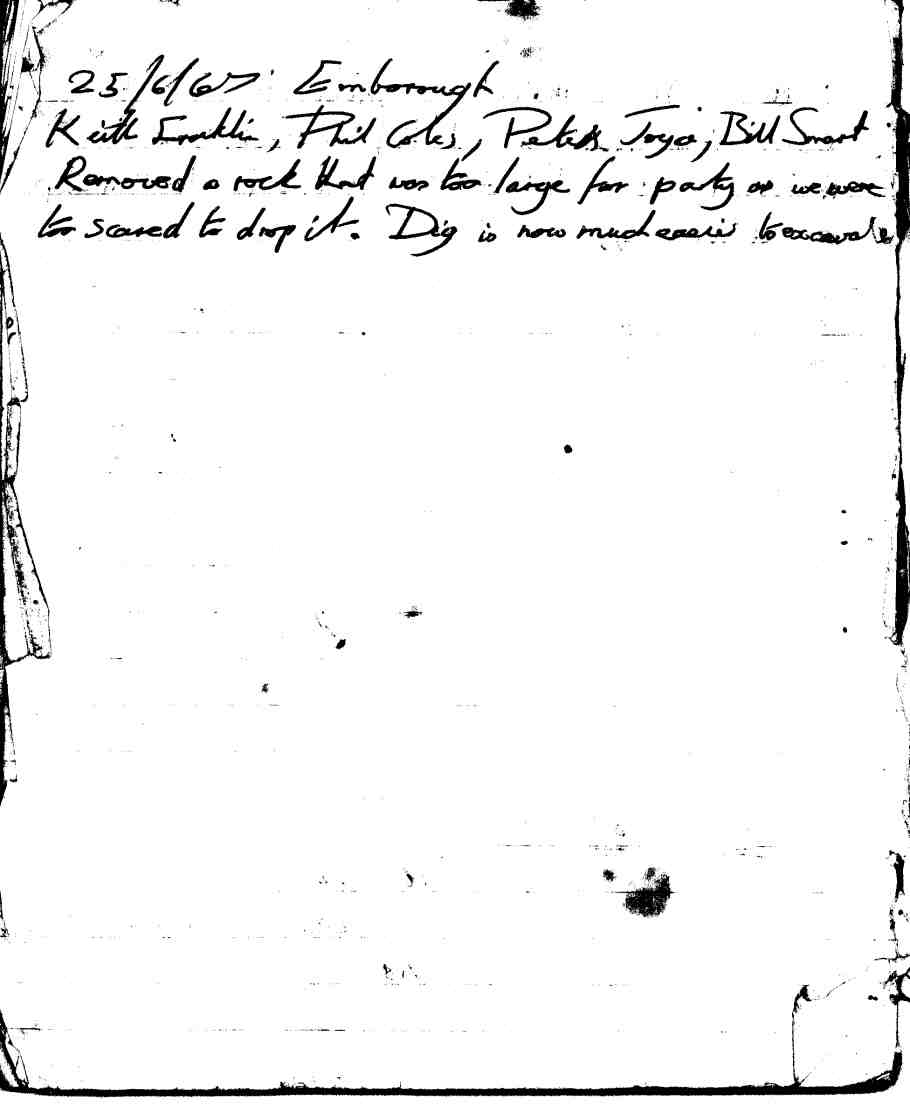 25/6/67 Emborough
Keith Franklin, Phil Coles, Peter Joyce, Bill Smart
Removed a rock that was too large for party as we were
too scared to drop it. Dig is now much easier to excavate